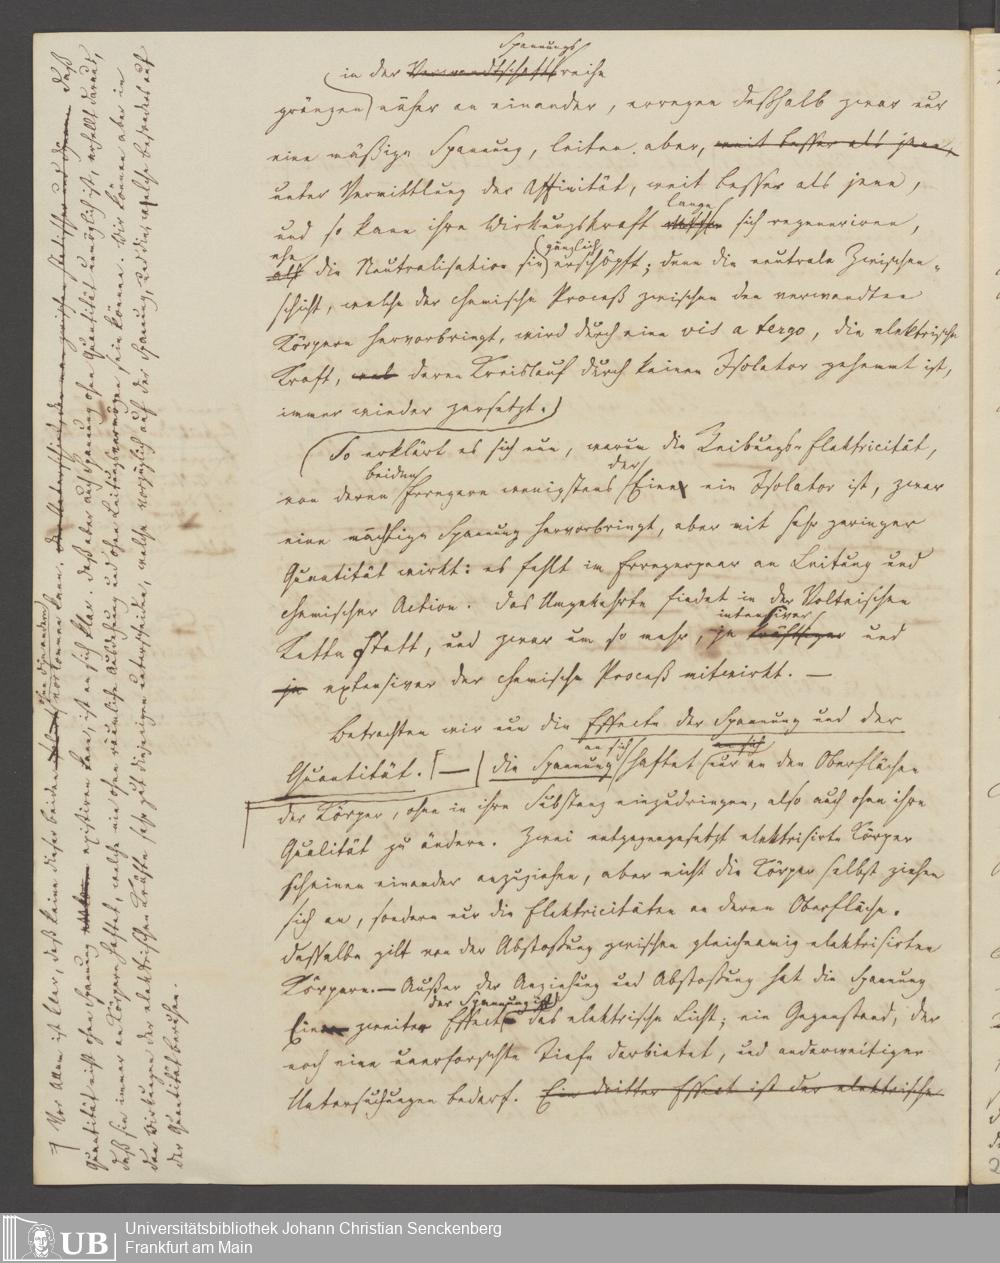 Spannungs
in der Verwandtschaftsreihe
gränzen) näher an einander, erregen deßhalb zwar nur
eine mäßige Spannung, leiten aber, weit besser als jene,
unter Vermittlung der Affinität, weit besser als jene,
lange
und so kann ihre Wirkungskraft sich regeneriren,
ehe gänzlich
als die Neutralisation sie erschöpft; denn die neutrale Zwischen-
schicht, welche der chemische Proceß zwischen den verwandten
Körpern hervorbringt, wird durch eine vis a tergo, die elektrische
Kraft, deren Kreislauf durch keinen Isolator gehemmt ist,
immer wieder zersetzt.)
So erklärt es sich nun, warum die Reibungs-Elektricität,
beiden der
von deren Erregern wenigstens Eine ein Isolator ist, zwar
eine mächtige Spannung hervorbringt, aber mit sehr geringer
Quantität wirkt: es fehlt im Erregerpaar an Leitung und
chemischer Action. Das Umgekehrte findet in der Voltaischen
intensiver
Kette Statt, und zwar um so mehr, je kräftiger und
je extensiver der chemische Proceß mitwirkt. —
Betrachten wir nun die Effecte der Spannung und der
an sich an sich
Quantität. — die Spannung haftet nur an den Oberflächen
der Körper, ohne in ihre Substanz einzudringen, also auch ohne ihre
Qualität zu ändern. Zwei entgegengesetzt elektrisirte Körper
scheinen einander anzuziehen, aber nicht die Körper selbst ziehen
sich an, sondern nur die Elektricitäten an deren Oberfläche.
Dasselbe gilt von der Abstoßung zwischen gleichnamig elektrisirten
Körpern. — Außer der Anziehung und Abstoßung hat die Spannung
der Spannung ist
Einen zweiter Effect das elektrische Licht; ein Gegenstand, der
noch eine unerforschte Tiefe darbietet, und anderweitiger
Untersuchungen bedarf. Ein dritter Effect ist der elektrische
Vor Allem ist klar, daß keine dieser beiden ohne die andere vorkommen kann. Daß
Quantität nicht ohne Spannung existiren kann, ist an sich klar. Daß aber auch Spannung ohne Quantität unmöglich ist, erhellt daraus,
daß sie immer an Körpern haftet, welche nie ohne räumliche Ausdehnung und ohne Leitungsvermögen sein können. Wir können aber in
den Wirkungen der elektrischen Kräfte sehr gut diejenigen unterscheiden, welche vorzüglich auf der Spannung, und die welche besonders auf
der Quantität beruhen.
Universitätsbibliothek Johann Christian Senckenberg
Frankfurt am Main
UB